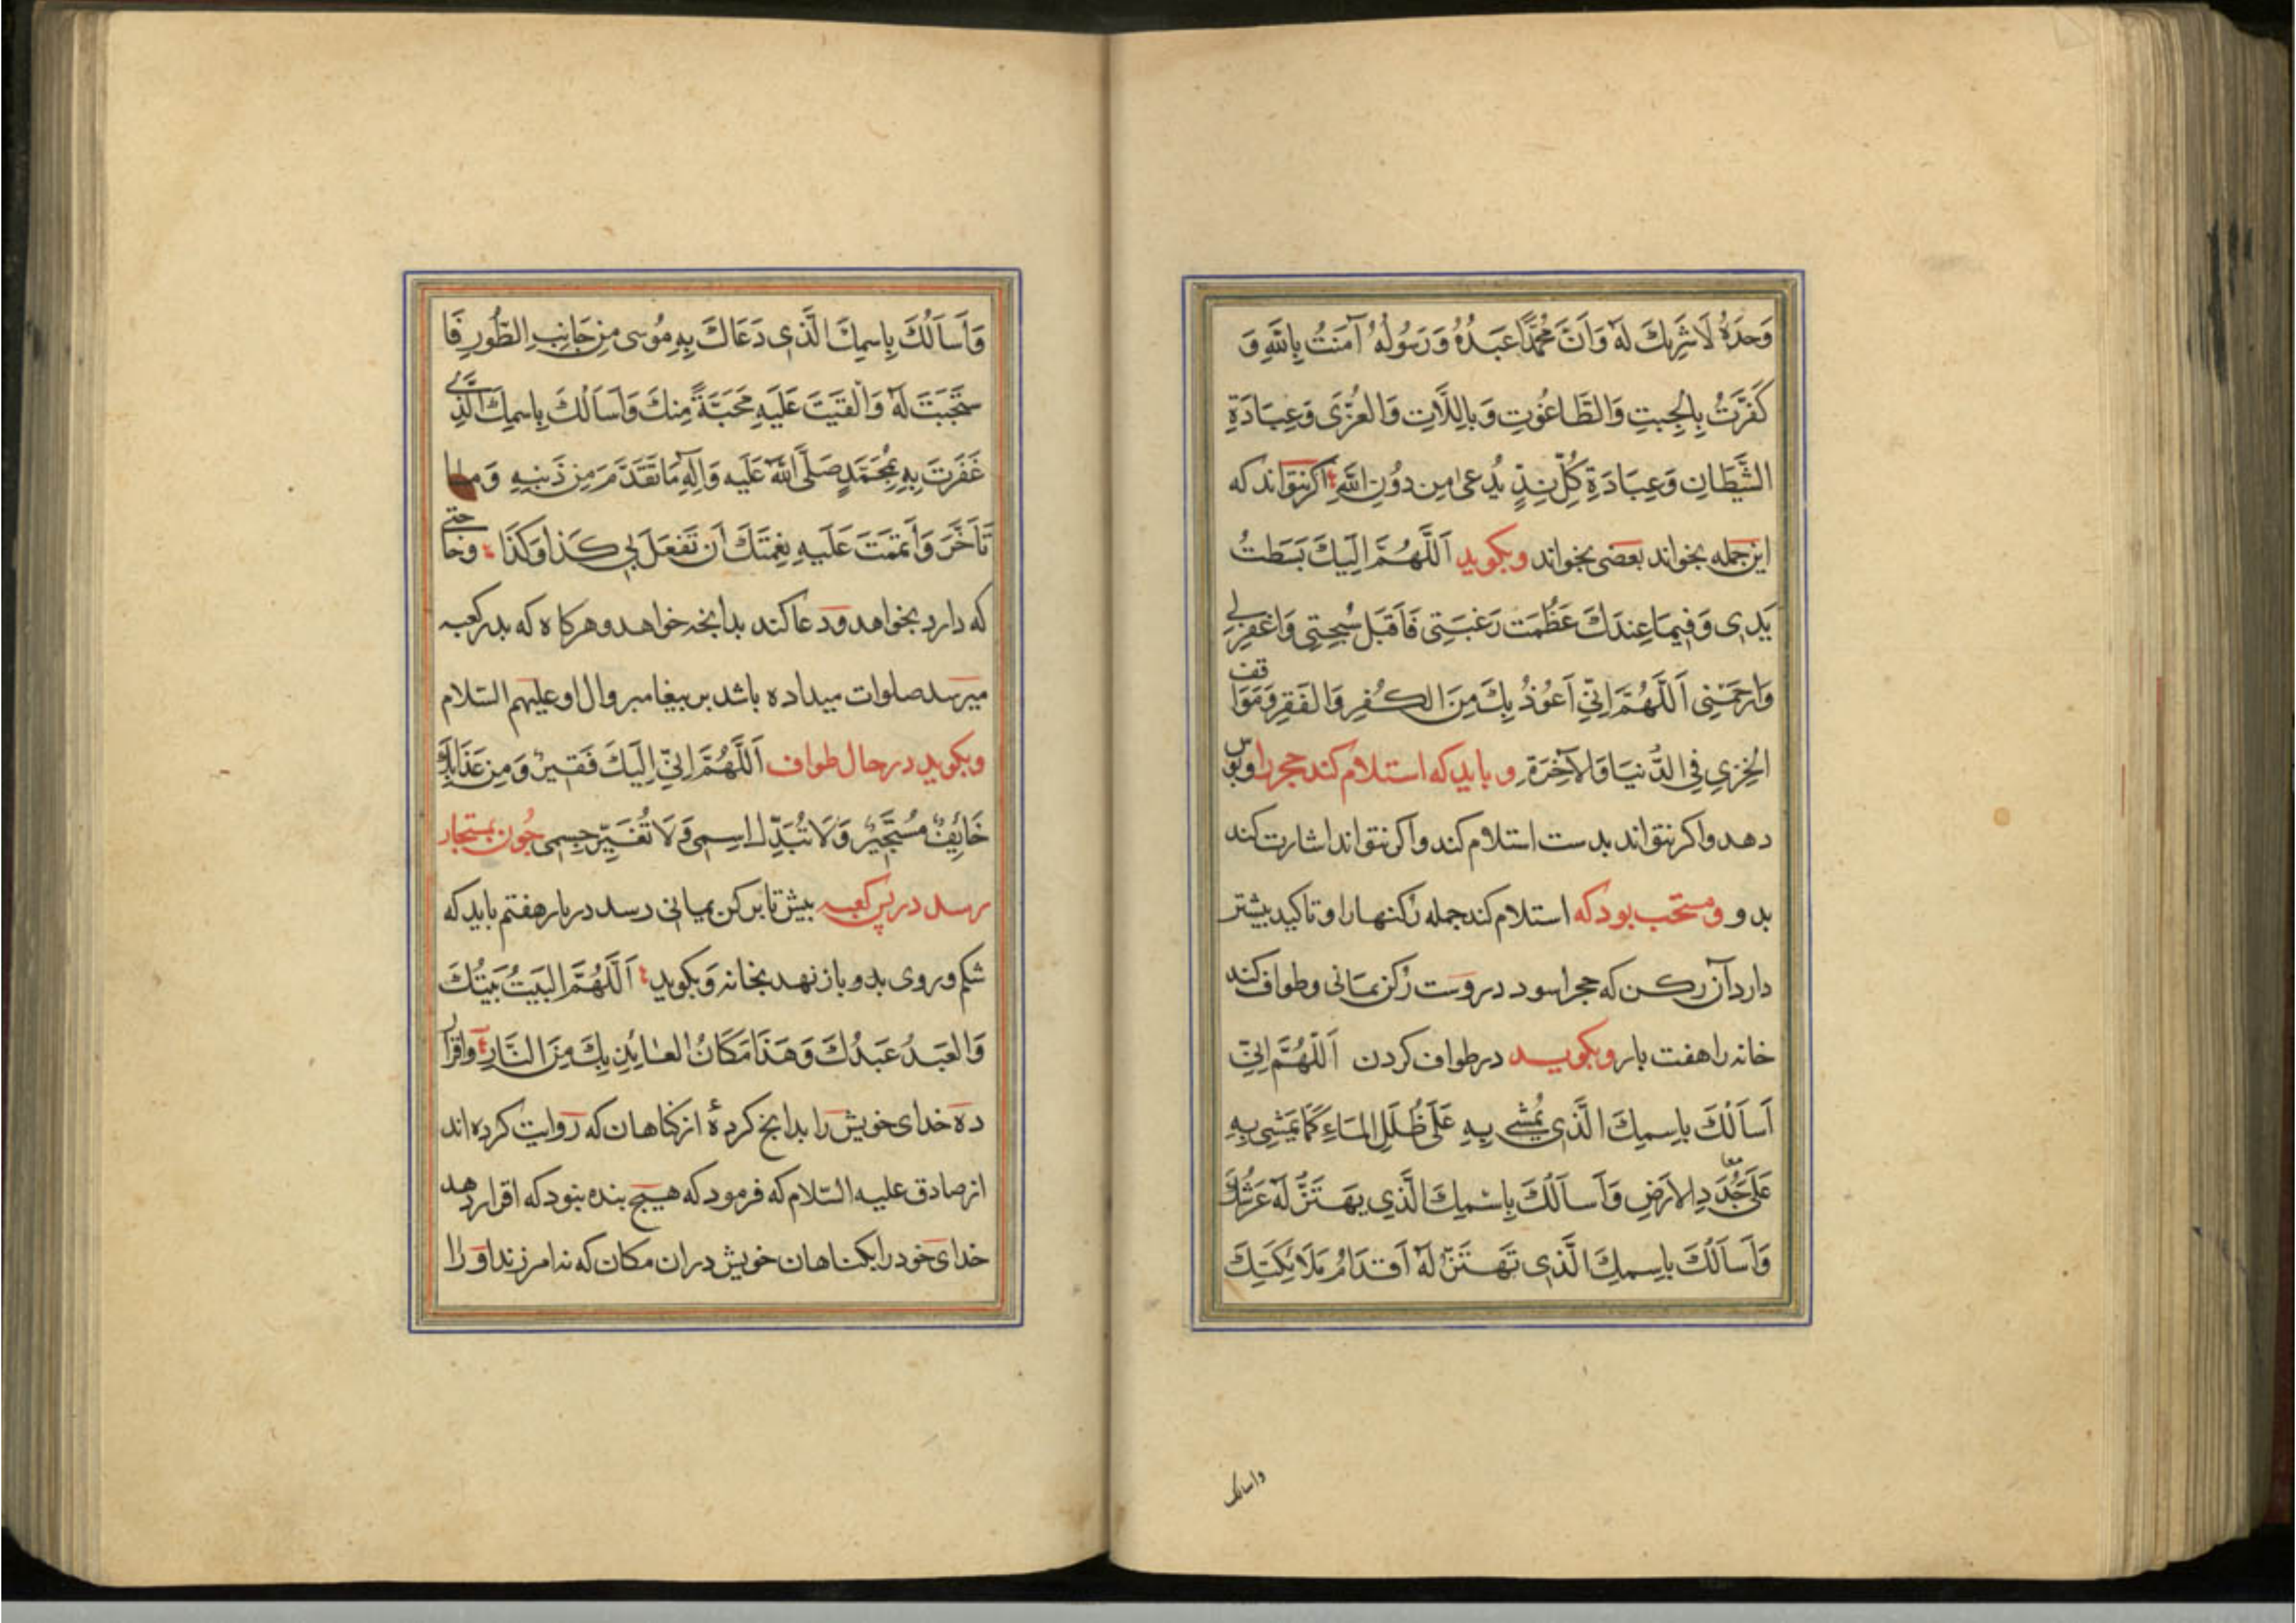 وَحدَهُ لَا شَرِيكَ لَهُ وَاَنَّ مُحَمَّدًا عَبدُهُ وَرَسُولُهُ آمَنتُ بِاللَّهِ وَ
كَفَرتُ بِالجِبتِ وَالطَّاغُوتِ وَبِاللَّاتِ وَالعُزَّى وَعِبَادَةِ
الشَّيطَانِ وَعِبَادَةِ كُلِّ نِدٍّ يُدعَى مِن دُونِ اللَّهِ اكر نتواند كه
اين جمله بخواند بعضى بخواند وبكويد اَللَّهُمَّ اِلَيكَ بَسَطتُ
يَدِى وَفِيمَا عِندَكَ عَظُمَت رَغبَتِى فَاَقبَل سُبحَتِى وَاغفِر لِى
وَارحَمنِى اَللَّهُمَّ اِنِّى اَعُوذُ بِكَ مِنَ الكُفرِ وَالفَقرِ وَمَوَاقف
الخِزىِ فِى الدُّنيَا وَالآخِرَةِ و بايد كه استلام كند حجر را وبوس
دهد واكر نتواند بدست استلام كند واكر نتواند اشارت كند
بدو ومستحب بود كه استلام كند جمله ركنها را وتاكيد بيشتر
دارد آن ركن كه حجر اسود دروست ركن يمانى وطواف كند
خانه را هفت بار وبكويد در طواف كردن اَللَّهُمَّ اِنِّى
اَسَالُكَ بِاسمِكَ الَّذِى يُمشَى بِهِ عَلَى ظُلَلِ المَاءِ كَمَا يُمشَى بِهِ
عَلَى جُدَدِ الاَرضِ وَاَسَالُكَ بِاسمِكَ الَّذِى يَهتَزُّ لَهُ عَرشُكَ
وَاَسَالُكَ بِاسمِكَ الَّذِى تَهتَزُّ لَهُ اَقدَامُ مَلَائِكَتِكَ
واسالك
وَاَسَالُكَ بِاسمِكَ الَّذِى دَعَاكَ بِهِ مُوسى مِن جَانِبِ الطُّورِ فَا
ستَجَبتَ لَهُ وَاَلقَيتَ عَلَيهِ مَحَبَّةً مِنكَ وَاَسَالُكَ بِاسمِكَ الَّذِى
غَفَرتَ بِهِ لِمُحَمَّدٍ صَلَّى اللَّهُ عَلَيهِ وَاٰلِهِ مَا تَقَدَّمَ مِن ذَنبِهِ وَمَا
تَاَخَّرَ وَاَتمَمتَ عَلَيهِ نِعمَتَكَ اَن تَفعَلَ بِى كَذَا وَكَذَا وحاجتى
كه دارد بخواهد ودعا كند بدانچه خواهد وهركاه كه بدر كعبه
ميرسد صلوات ميداده باشد بر پيغامبر وال او عليهم السّلام
وبكويد در حال طواف اَللَّهُمَّ اِنِّى اِلَيكَ فَقِيرٌ وَمِن عَذَابِكَ
خَائِفٌ مُستَجِيرٌ وَلَا تُبَدِّل اسمِى وَلَا تُغَيِّر جِسمِى چون بمستجار
رسد در پس كعبه پيش تا بركن يمانى رسد در بار هفتم بايد كه
شكم وروى بدو باز نهد بخانه وبكويد اَللَّهُمَّ البَيتُ بَيتُكَ
وَالعَبدُ عَبدُكَ وَهَذَا مَكَانُ العَائِذِ بِكَ مِنَ النَّارِ واقرار
ده خداى خويش را بدانچ كردهٔ از كناهان كه روايت كرده اند
از صادق عليه السّلام كه فرمود كه هيچ بنده نبود كه اقرار دهد
خداى خود را بكناهان خويش در ان مكان كه نه امرزند او را